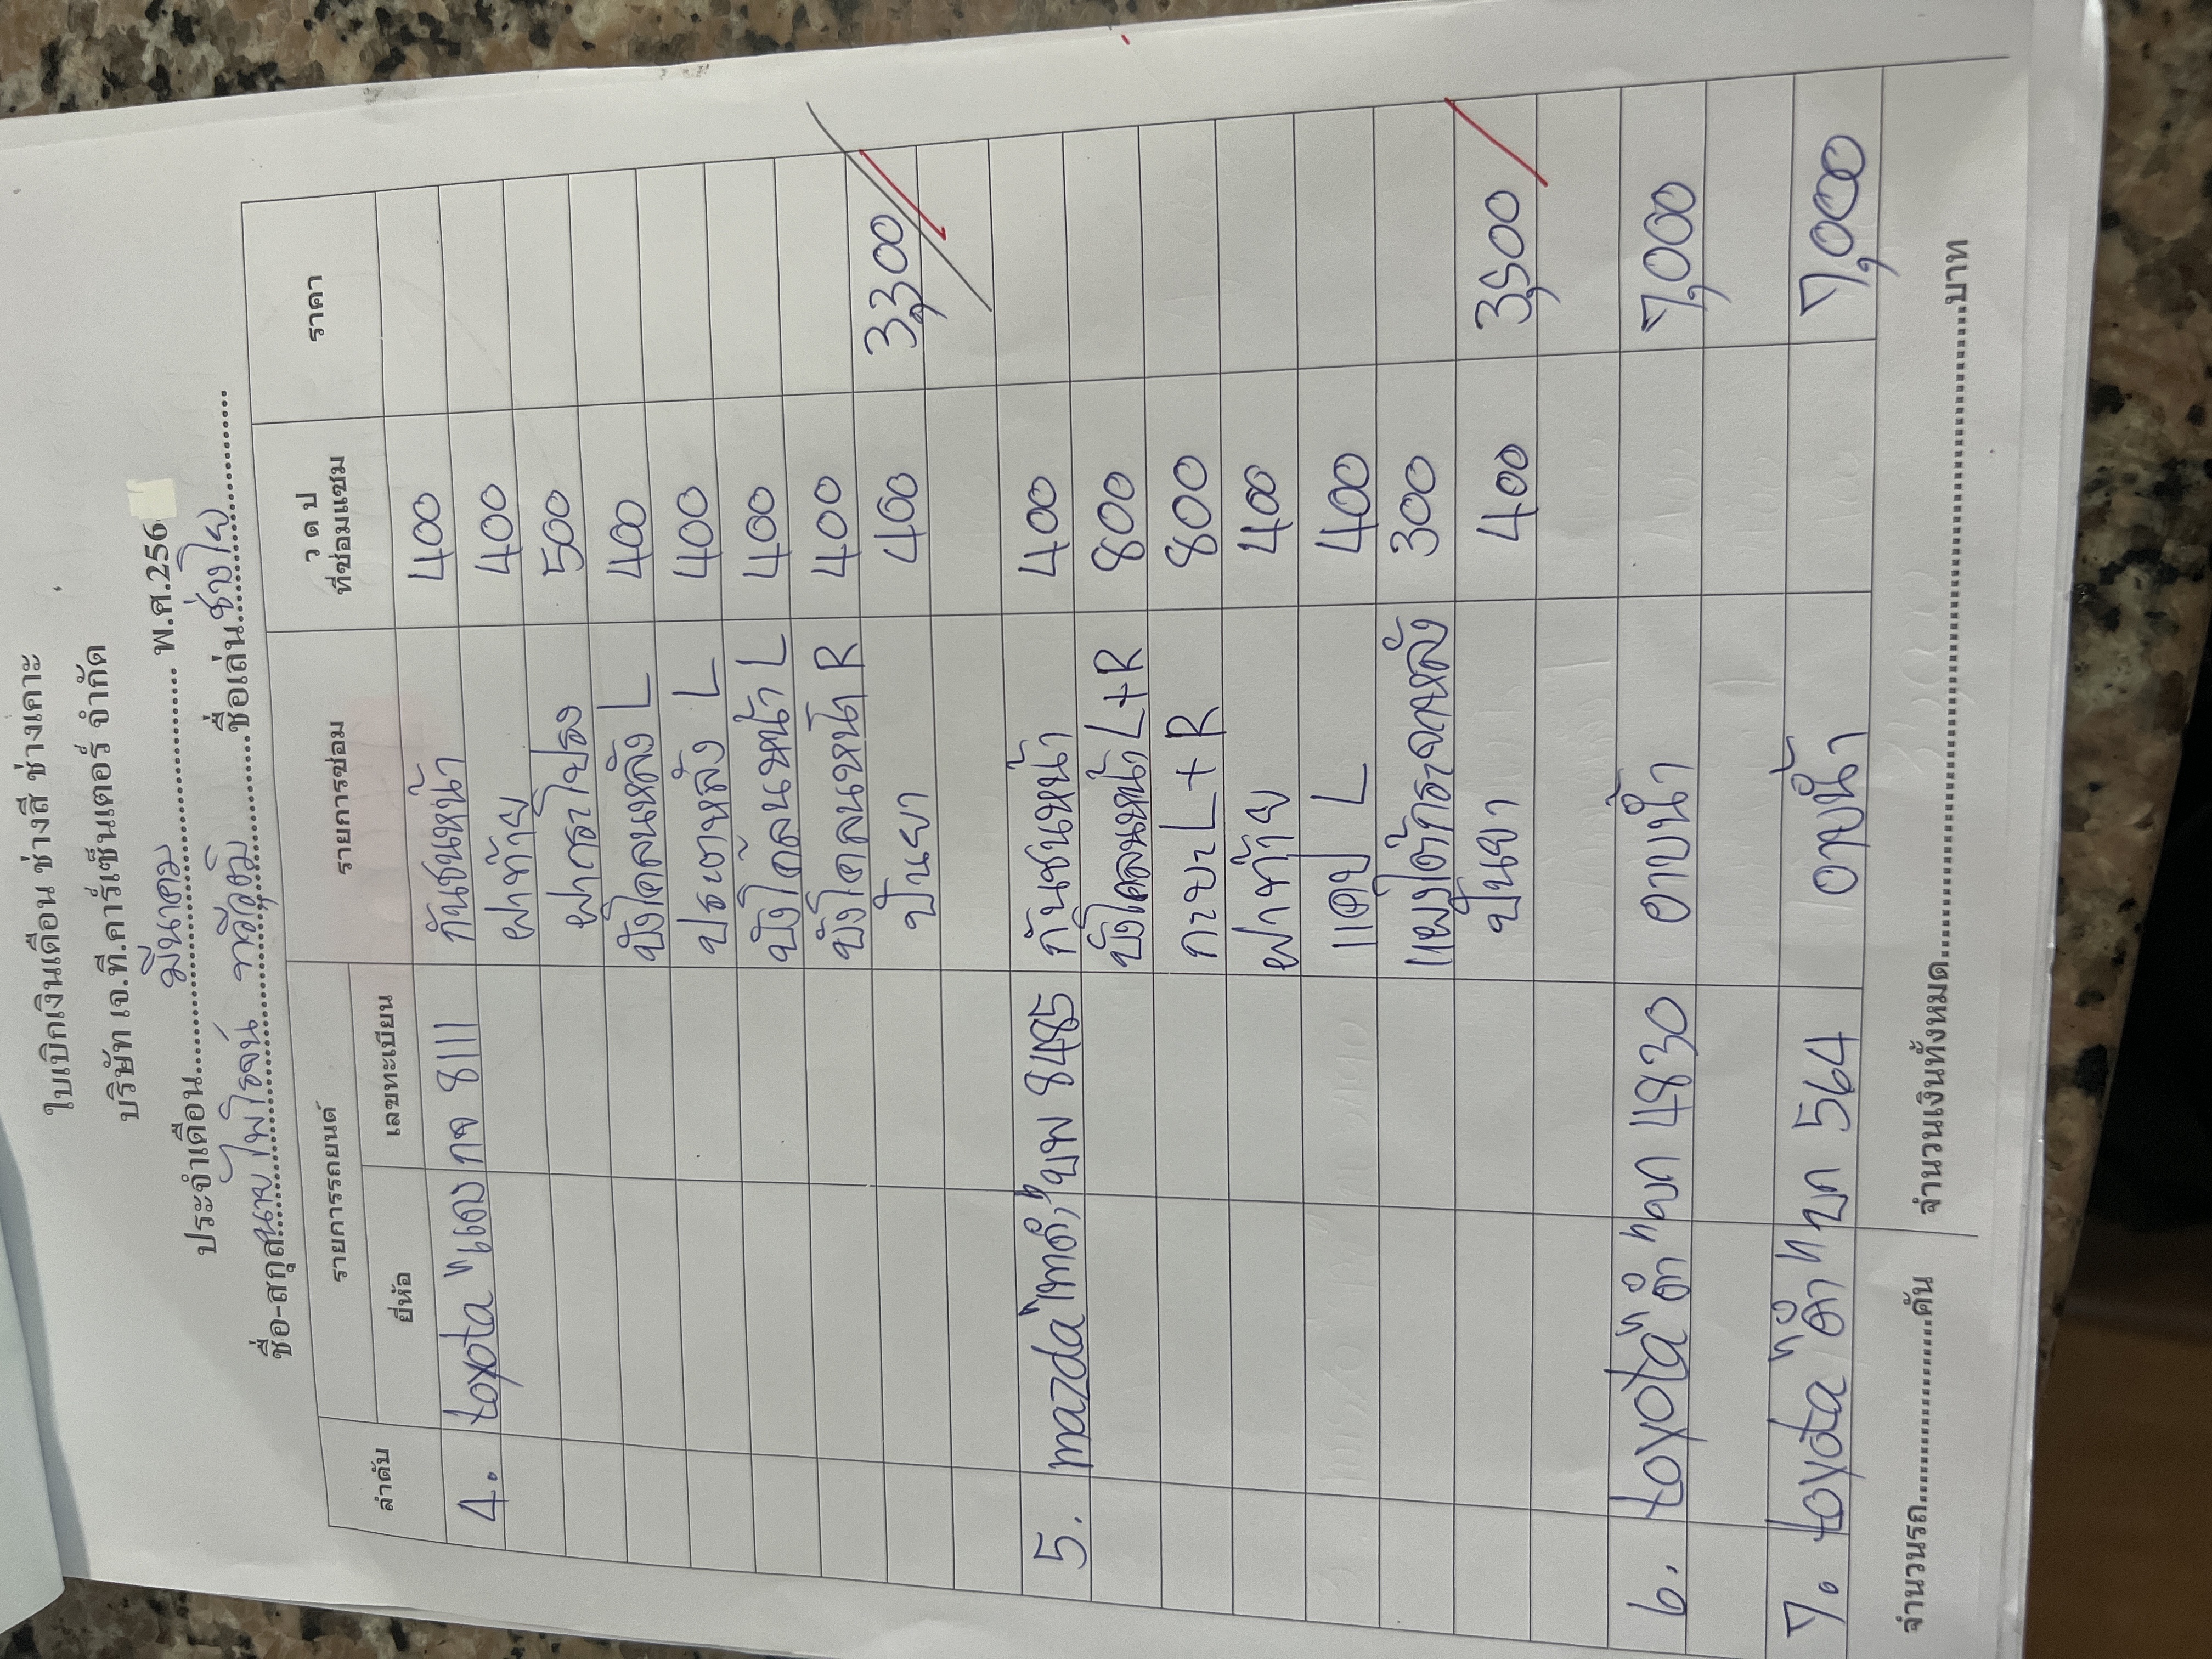 ใบเบิกเงินเดือน ช่างสี ช่างเกาะ
บริษัท เจ.ที.คาร์เซ็นเตอร์ จำกัด
ประจำเดือน มีนาคม พ.ศ.256
ชื่อ-สกุล นาย ไพโรจน์ ชื่อเล่น ช่างโย
ลำดับ รายการรถยนต์ รายการซ่อม ว ด ป ที่ซ่อมแซม ราคา
ยี่ห้อ เลขทะเบียน
4. toyota "แดง กจ 8111 กันชนหน้า 400
ฝาท้าย 400
ฝากระโปรง 500
บังโคลนหลัง L 400
ประตูหลัง L 400
บังโคลนหน้า L 400
บังโคลนหน้า R 400
ปั่นยา 400 3,300
5. mazda "เทาดำ" ขพ 8485 กันชนหน้า 400
บังโคลนหน้า L+R 800
กะบะ L+R 800
ฝาท้าย 400
แคป L 400
แผงใต้กระจกหลัง 300
ปั่นยา 400 3,500
6. toyota "ดำ" ฃก 4830 อาบน้ำ 7,000
7. toyota "ดำ" บก 564 อาบน้ำ 7,000
จำนวนรถ คัน จำนวนเงินทั้งหมด บาท